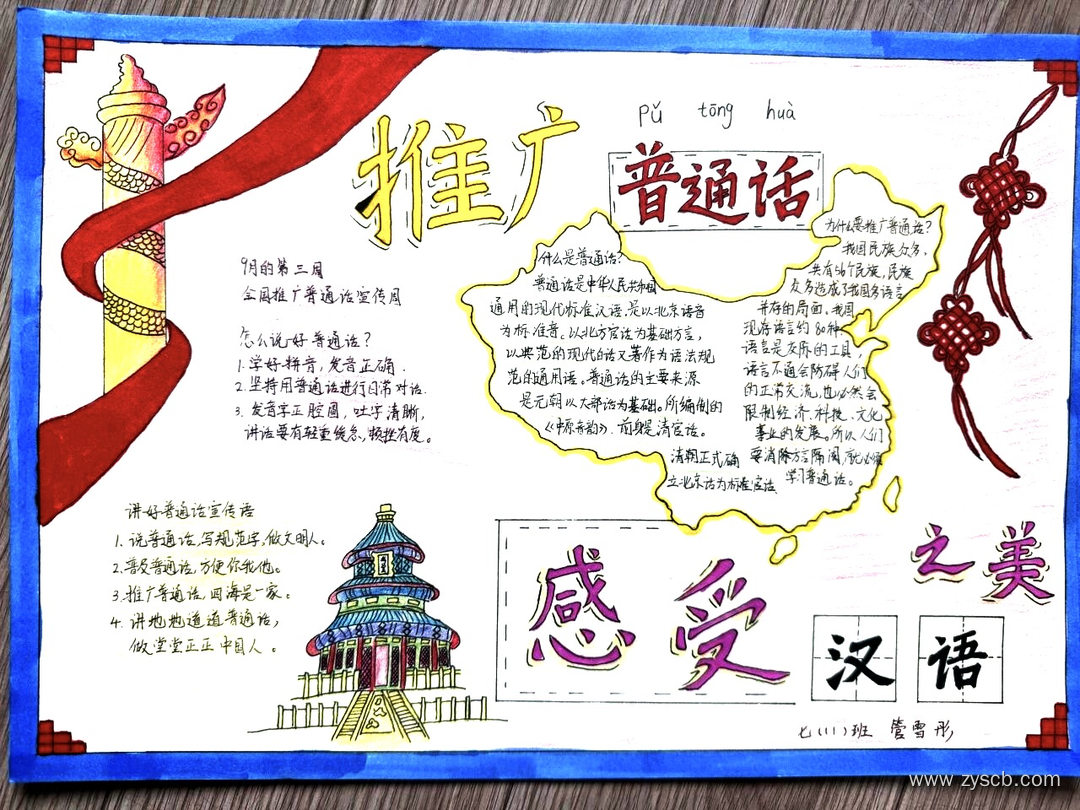 pǔ tōng huà
推广
普通话
9月的第三周
全国推广普通话宣传周
怎么说好普通话？
1. 学好拼音，发音正确.
2. 坚持用普通话进行日常对话.
3. 发音字正腔圆，吐字清晰，
讲话要有轻重缓急、顿挫有度。
讲好普通话宣传语
1. 说普通话，写规范字，做文明人。
2. 普及普通话，方便你我他。
3. 推广普通话，四海是一家。
4. 讲地地道道普通话，
做堂堂正正中国人。
什么是普通话？
普通话是中华人民共和国
通用的现代标准汉语，是以北京语音
为标准音。以北方官话为基础方言，
以典范的现代白话文著作为语法规
范的通用语。普通话的主要来源
是元朝以大都话为基础。所编制的
《中原音韵》. 前身是清官话。
清朝正式确
立北京话为标准官话
为什么要推广普通话？
我国民族众多，
共有56个民族，民族
众多造成了我国多语言
并存的局面。我国
现存语言约80种，
语言是交际的工具，
语言不通会防碍人们
的正常交流，也必然会
限制经济、科技、文化
事业的发展。所以人们
要消除方言隔阂，就必须
学习普通话。
感受
汉语
之美
七(11)班 管雪彤
www.zyscb.com